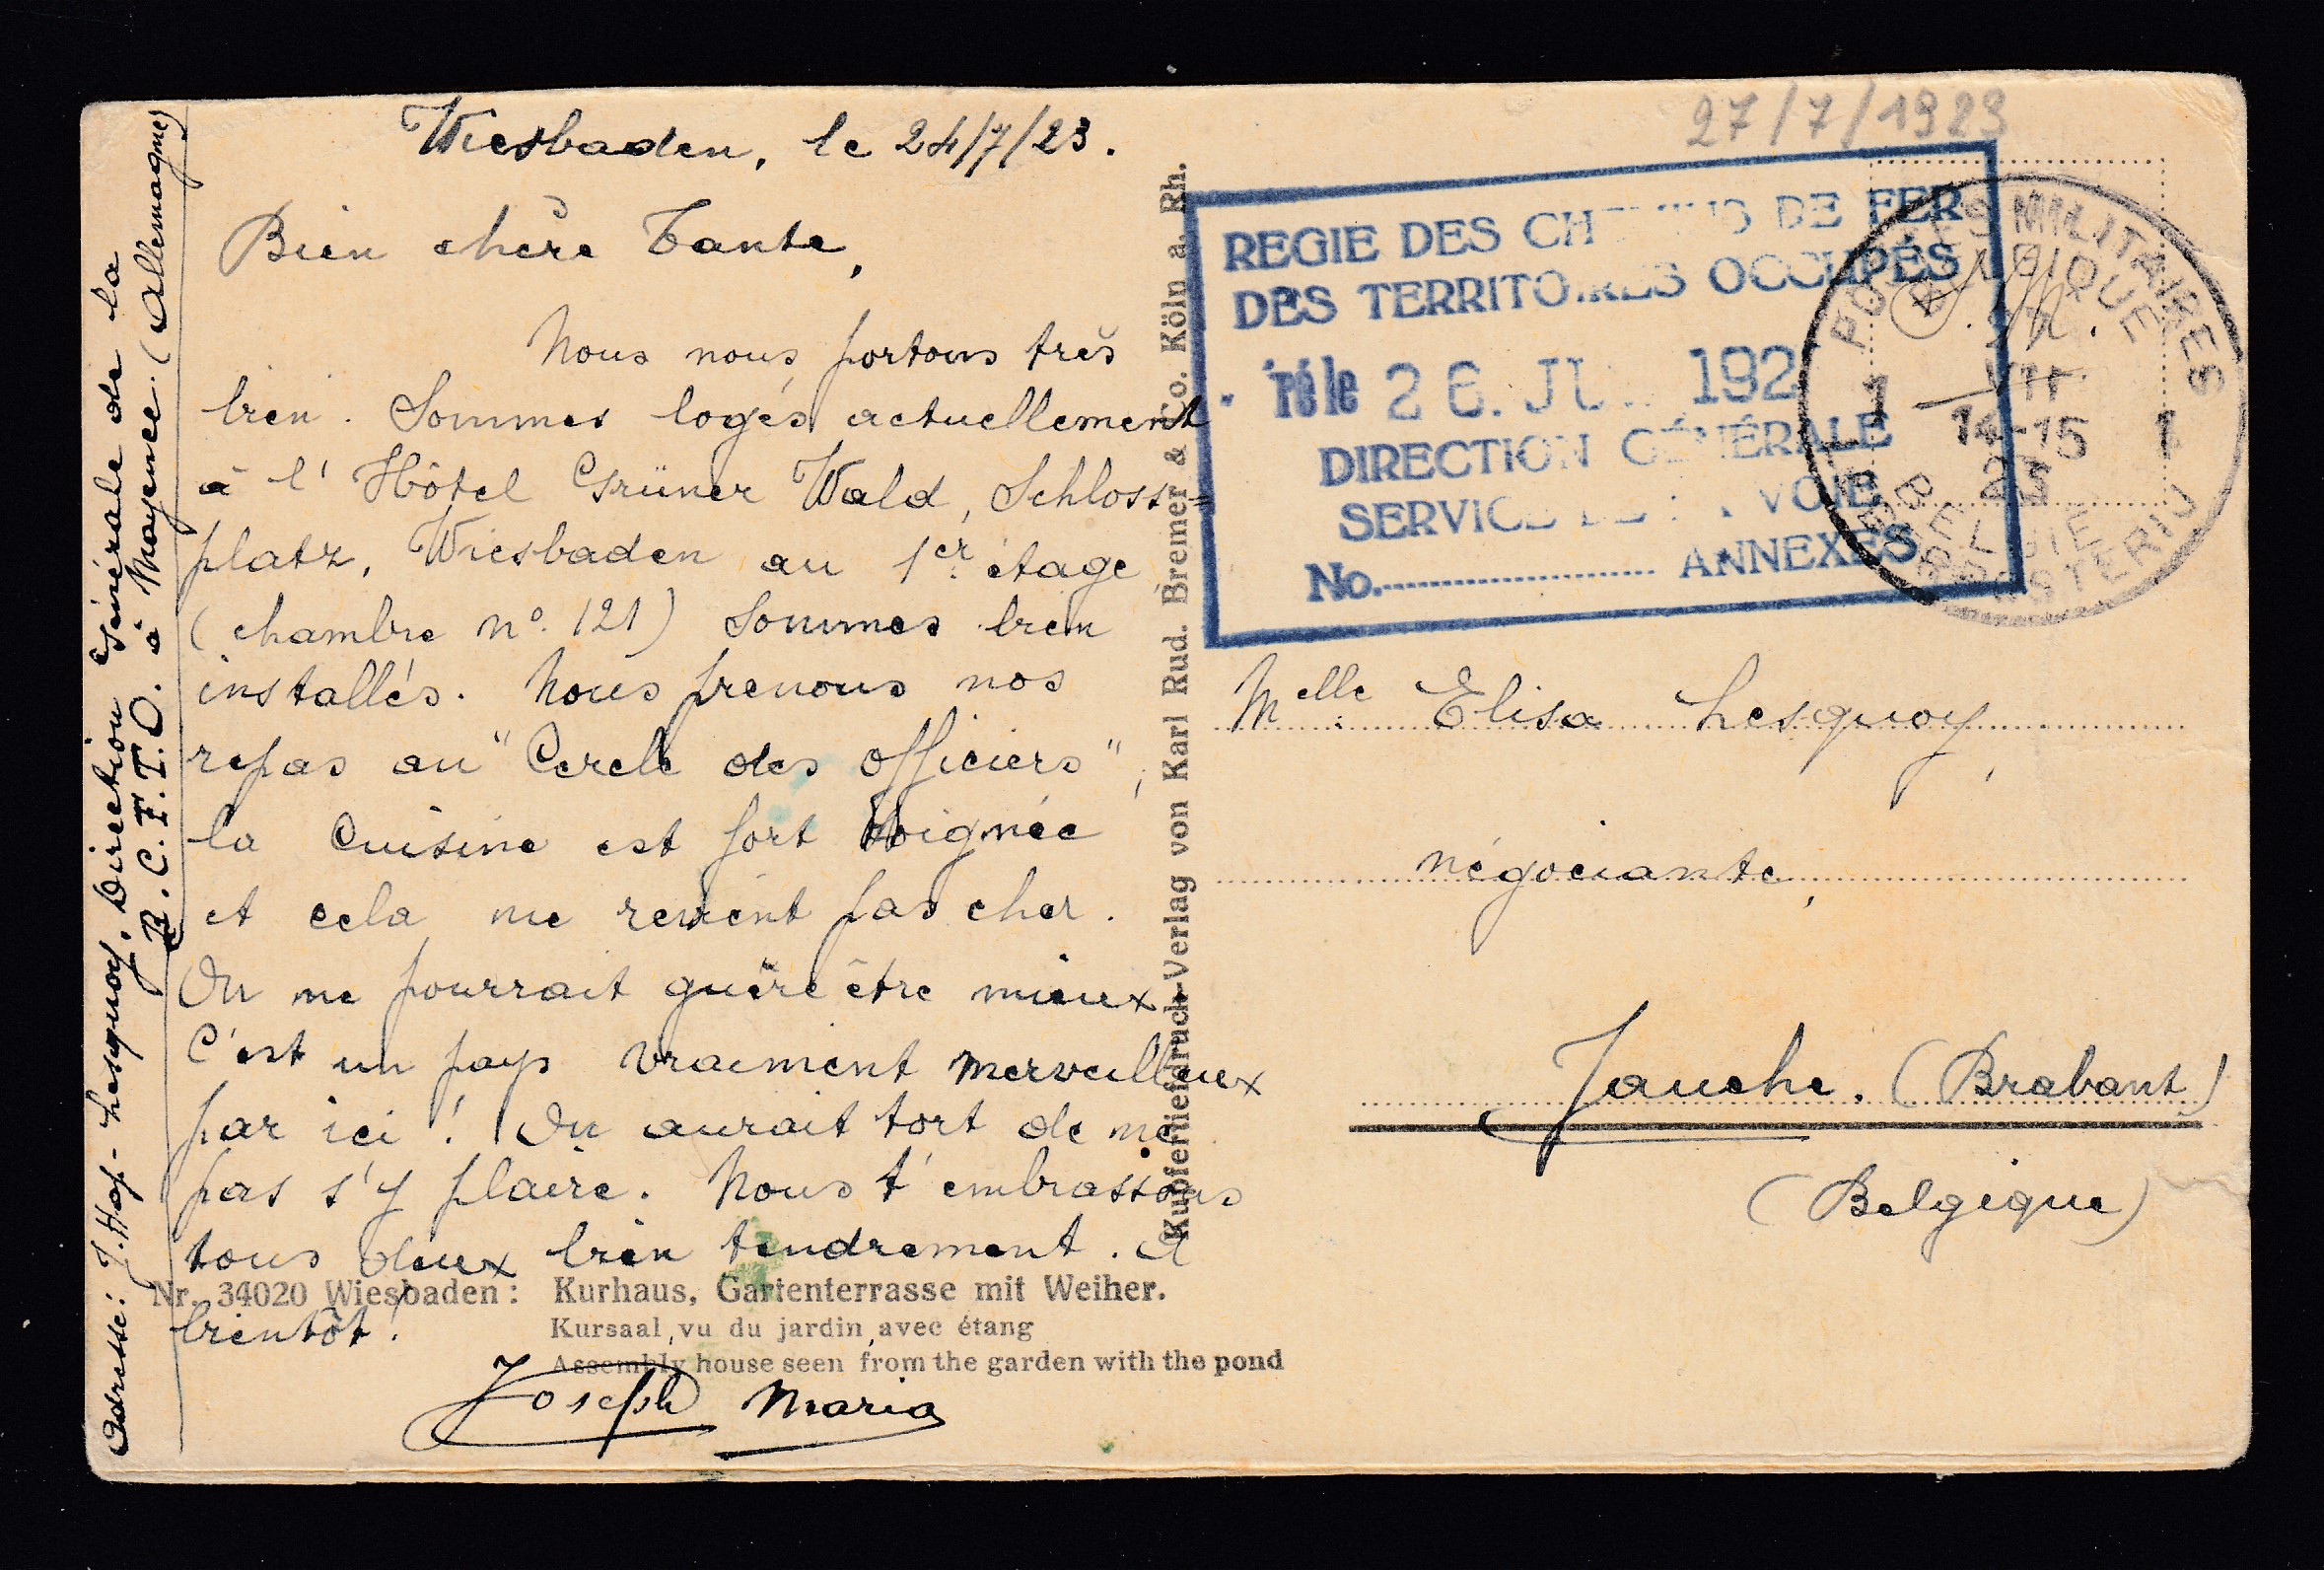 Wiesbaden, le 24/7/23.
Bien chère Tante,
Nous nous portons très
bien. Sommes logés actuellement
à l'Hôtel Grüner Wald, Schloss=
platz, Wiesbaden au 1er étage
(chambre n° 121) Sommes bien
installés. Nous prenons nos
repas au "Cercle des officiers",
la cuisine est fort soignée
et cela ne revient pas cher.
On ne pourrait guère être mieux.
C'est un pays vraiment merveilleux
par ici! On aurait tort de ne
pas s'y plaire. Nous t'embrassons
tous deux bien tendrement. A
bientôt!
Joseph Maria
Adresse: J. Lesquoy, Direction Générale de la
R.C.F.T.O. à Mayence. (Allemagne)
Nr. 34020 Wiesbaden: Kurhaus, Gartenterrasse mit Weiher.
Kursaal, vu du jardin, avec étang
Assembly house seen from the garden with the pond
Kupfertiefdruck-Verlag von Karl Rud. Bremer & Co. Köln a. Rh.
27/7/1923
REGIE DES CHEMINS DE FER
DES TERRITOIRES OCCUPÉS
ré le 26. JUI 192
DIRECTION GÉNÉRALE
SERVICE DE LA VOIE
No. ANNEXES
POSTES MILITAIRES
BELGIQUE
S.M.
27
1 VII 1
14-15
23
BELGIE
LEGERPOSTERIJ
Melle Elisa Lesquoy,
négociante,
Jauche. (Brabant)
(Belgique)